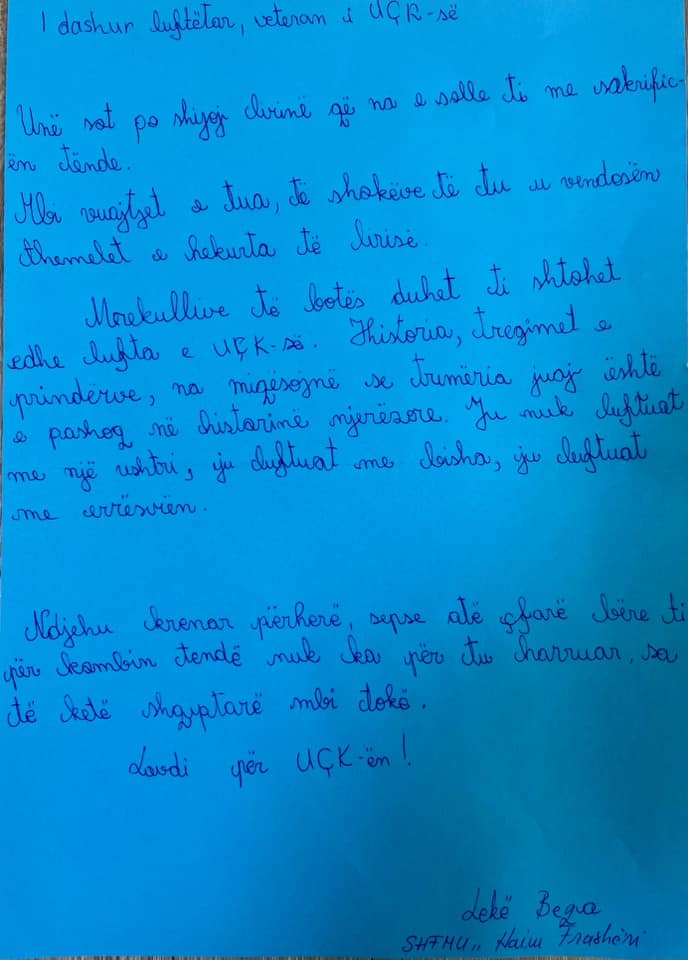 I dashur luftëtar, veteran i UÇK-së
Unë sot po shijoj lirinë që na e solle ti me sakrific-
ën tënde.
Mbi vuajtjet e tua, të shokëve të tu u vendosën
themelet e hekurta të lirisë.
Mrekullive të botës duhet ti shtohet
edhe lufta e UÇK-së. Historia, tregimet e
prindërve, na migësojnë se trumëria juaj është
e pashoq në historinë njerëzore. Ju nuk luftuat
me një ushtri, ju luftuat me bisha, ju luftuat
me errësirën.
Ndjehu krenar përherë, sepse atë çfarë bëre ti
për kombin tendë nuk ka për tu harruar, sa
të ketë shqiptarë mbi tokë.
Lavdi për UÇK-ën!
Lekë Beqa
SHFMU ,, Naim Frashëri